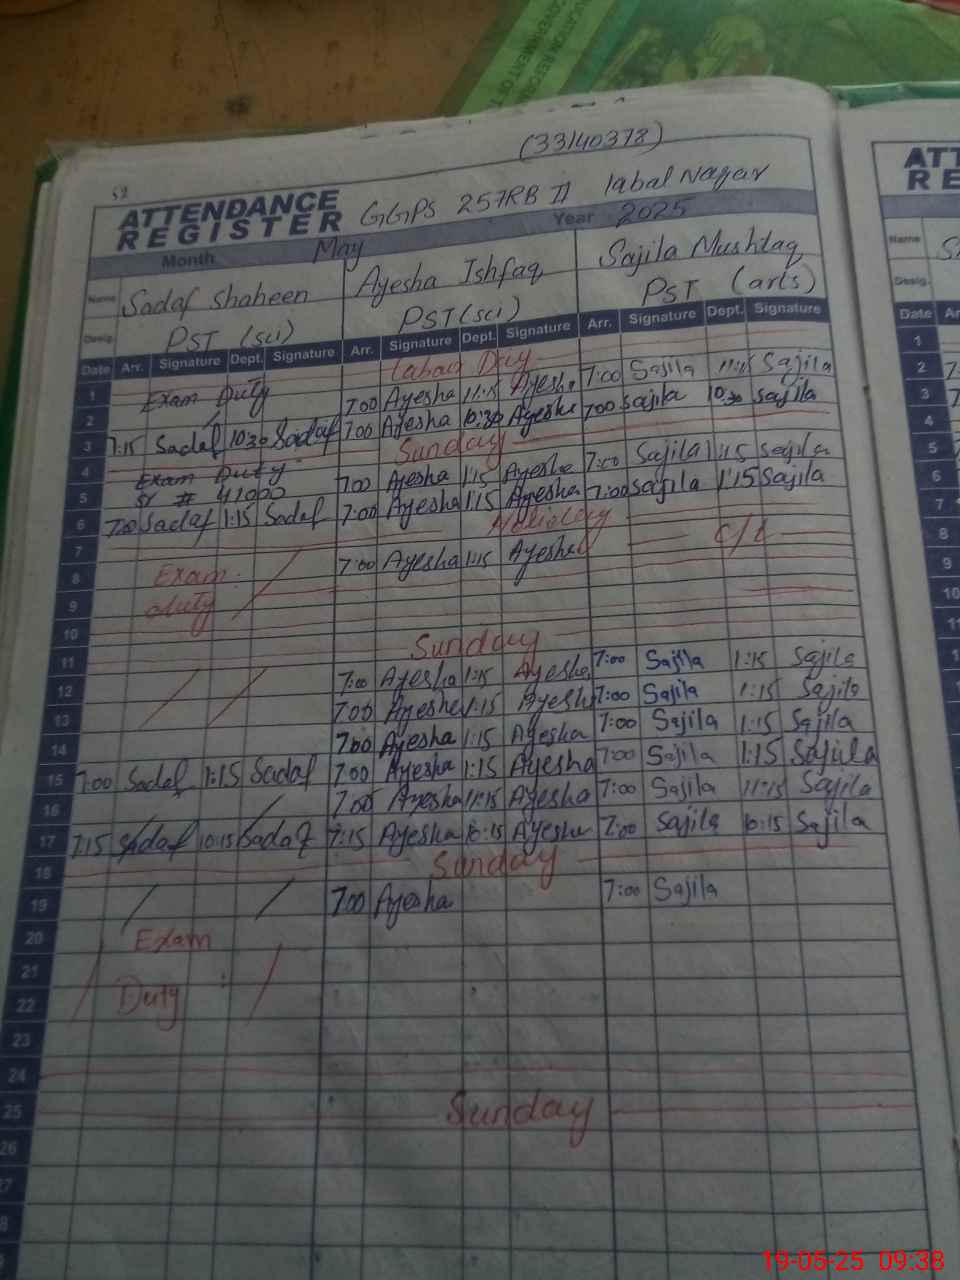 CATION REFOR
GOVERNMENT OF T
(33140378)
52
ATTENDANCE REGISTER GGPS 257RB II Iabal Nagar
Month May Year 2025
Name Sadaf Shaheen Ayesha Ishfaq Sajila Mushtaq
Desig. PST (sci) PST (sci) PST (arts)
Date Arr. Signature Dept. Signature Arr. Signature Dept. Signature Arr. Signature Dept. Signature
1 Labour Day
2 Exam Duty 7:00 Ayesha 11:15 Ayesha 7:00 Sajila 11:15 Sajila
3 7:15 Sadaf 10:30 Sadaf 7:00 Ayesha 10:30 Ayesha 7:00 Sajila 10:30 Sajila
4 Sunday
5 Exam Duty 7:00 Ayesha 1:15 Ayesha 7:00 Sajila 1:15 Sajila
# 41000
6 7:00 Sadaf 1:15 Sadaf 7:00 Ayesha 1:15 Ayesha 7:00 Sajila 1:15 Sajila
7 Holiday
8 Exam 7:00 Ayesha 1:15 Ayesha C/L
9 Duty
10
11 Sunday
12 7:00 Ayesha 1:15 Ayesha 7:00 Sajila 1:15 Sajila
13 7:00 Ayesha 1:15 Ayesha 7:00 Sajila 1:15 Sajila
14 7:00 Ayesha 1:15 Ayesha 7:00 Sajila 1:15 Sajila
15 7:00 Sadaf 1:15 Sadaf 7:00 Ayesha 1:15 Ayesha 7:00 Sajila 1:15 Sajila
16 7:00 Ayesha 11:15 Ayesha 7:00 Sajila 11:15 Sajila
17 7:15 Sadaf 10:15 Sadaf 7:15 Ayesha 10:15 Ayesha 7:00 Sajila 10:15 Sajila
18 Sunday
19 7:00 Ayesha 7:00 Sajila
20 Exam
21
22 Duty
23
24
25 Sunday
26
ATT
RE
Name
Desig.
Date
1
2
3
4
5
6
7
8
9
10
11
19-05-25 09:38